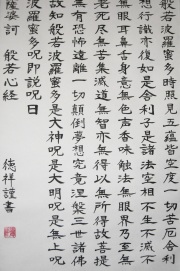 般若波羅蜜多時照見五蘊皆空度一切苦厄舍利
想行識亦復如是舍利子是諸法空相不生不滅不
無眼耳鼻舌身意無色聲香味觸法無眼界乃至無
老死盡無苦集滅道無智亦無得以無所得故菩提
無有恐怖遠離一切顛倒夢想究竟涅槃三世諸佛
故知般若波羅蜜多是大神呪是大明呪是無上呪
波羅蜜多呪即說呪曰
薩婆訶 般若心經
德祥謹書